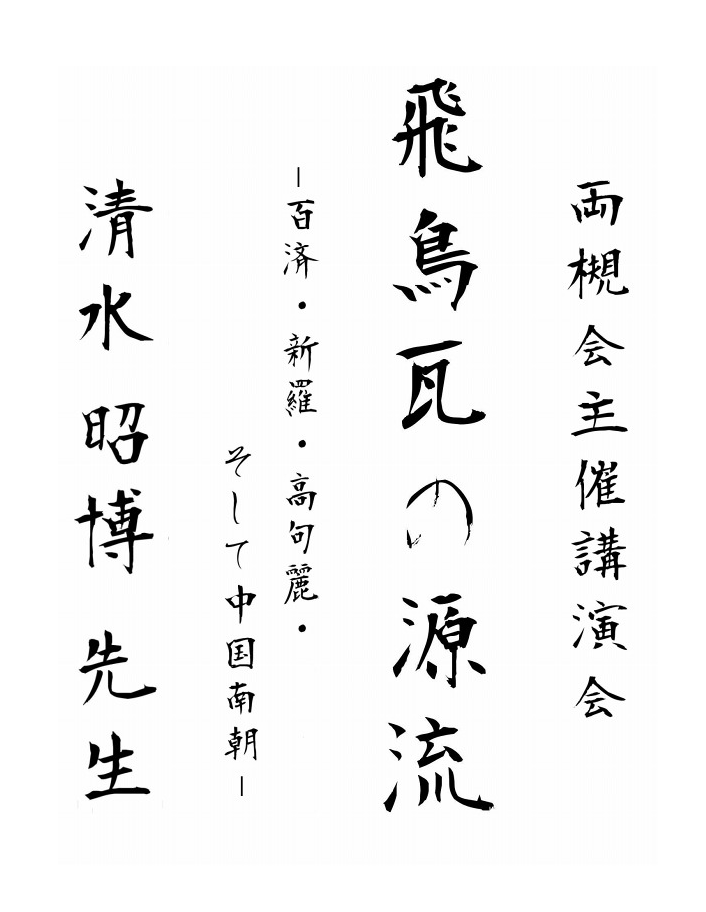 両槻会主催講演会
飛鳥瓦の源流
―百済・新羅・高句麗・
そして中国南朝―
清水昭博先生